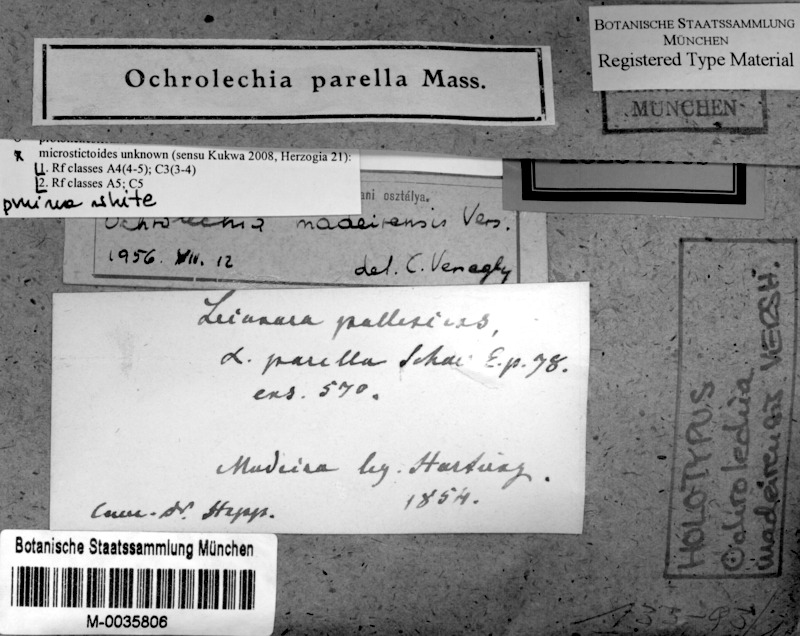 BOTANISCHE STAATSSAMMLUNG
MÜNCHEN
Registered Type Material
MÜNCHEN
OCHROLECHIA PARELLA MASS.
microstictoides unknown (sensu Kukwa 2008, Herzogia 21):
1. Rf classes A4(4-5); C3(3-4)
2. Rf classes A5; C5
pruina white
ani osztálya.
Ochrolechia madeirensis Vers.
1956. VII. 12
det. C. Verseghy
Lecanora pallescens,
L. parella Schae E. p. 78.
exs. 570.
Madeira leg. Hartung.
1854.
Com. Dr. Hepp.
HOLOTYPUS
Ochrolechia
madeirensis VERSH.
Botanische Staatssammlung München
M-0035806